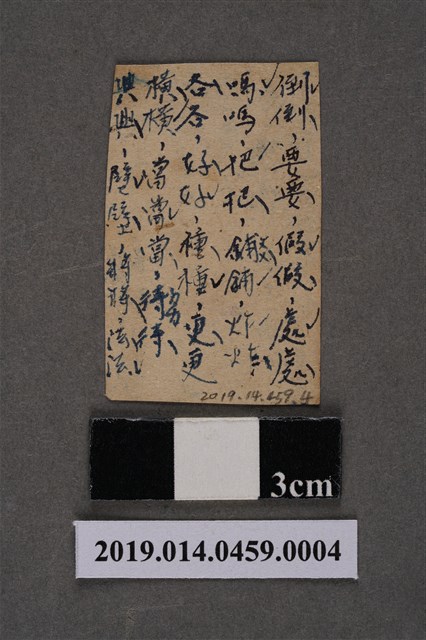 倒倒，要要，假假，處處
嗎嗎，把把，鋪鋪，炸炸
各各，好好，種種，更更
橫橫，當當當，待待
興興，壁壁，將將，法法
2019.14.459.4
3cm
2019.014.0459.0004